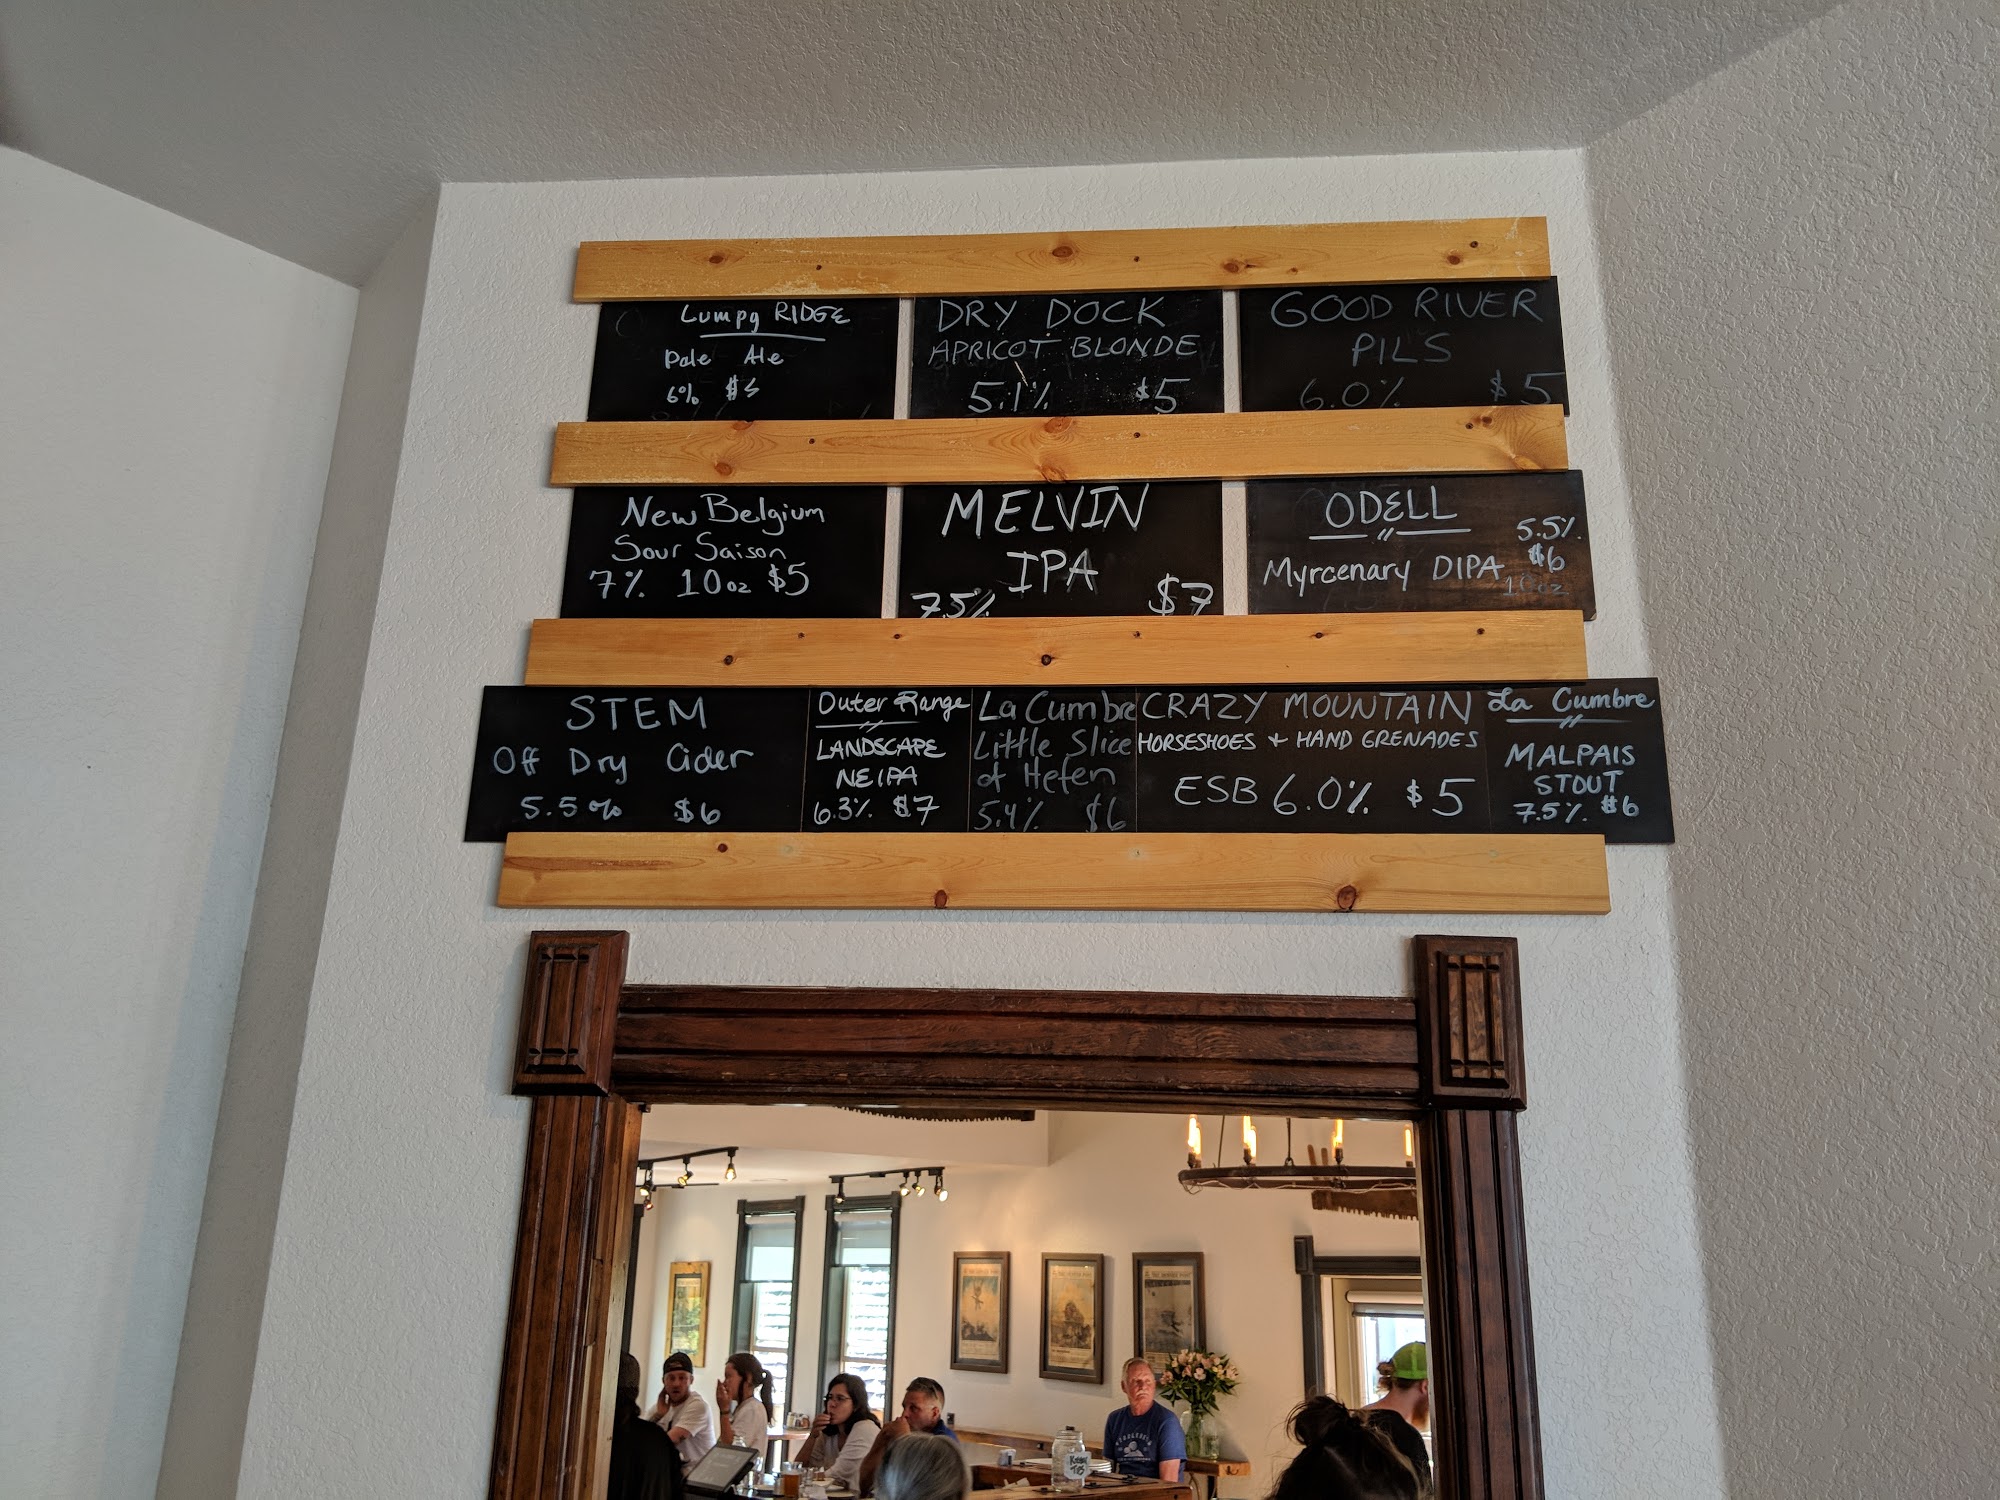 Lumpy RIDGE
Pale Ale
6% $5
DRY DOCK
APRICOT BLONDE
5.1% $5
GOOD RIVER
PILS
6.0% $5
New Belgium
Sour Saison
7% 10oz $5
MELVIN
IPA
7.5% $7
ODELL
Myrcenary DIPA
5.5%
$6
10oz
STEM
Off Dry Cider
5.5% $6
Outer Range
LANDSCAPE
NEIPA
6.3% $7
La Cumbre
Little Slice
of Hefen
5.4% $6
CRAZY MOUNTAIN
HORSESHOES + HAND GRENADES
ESB 6.0% $5
La Cumbre
MALPAIS
STOUT
7.5% $6